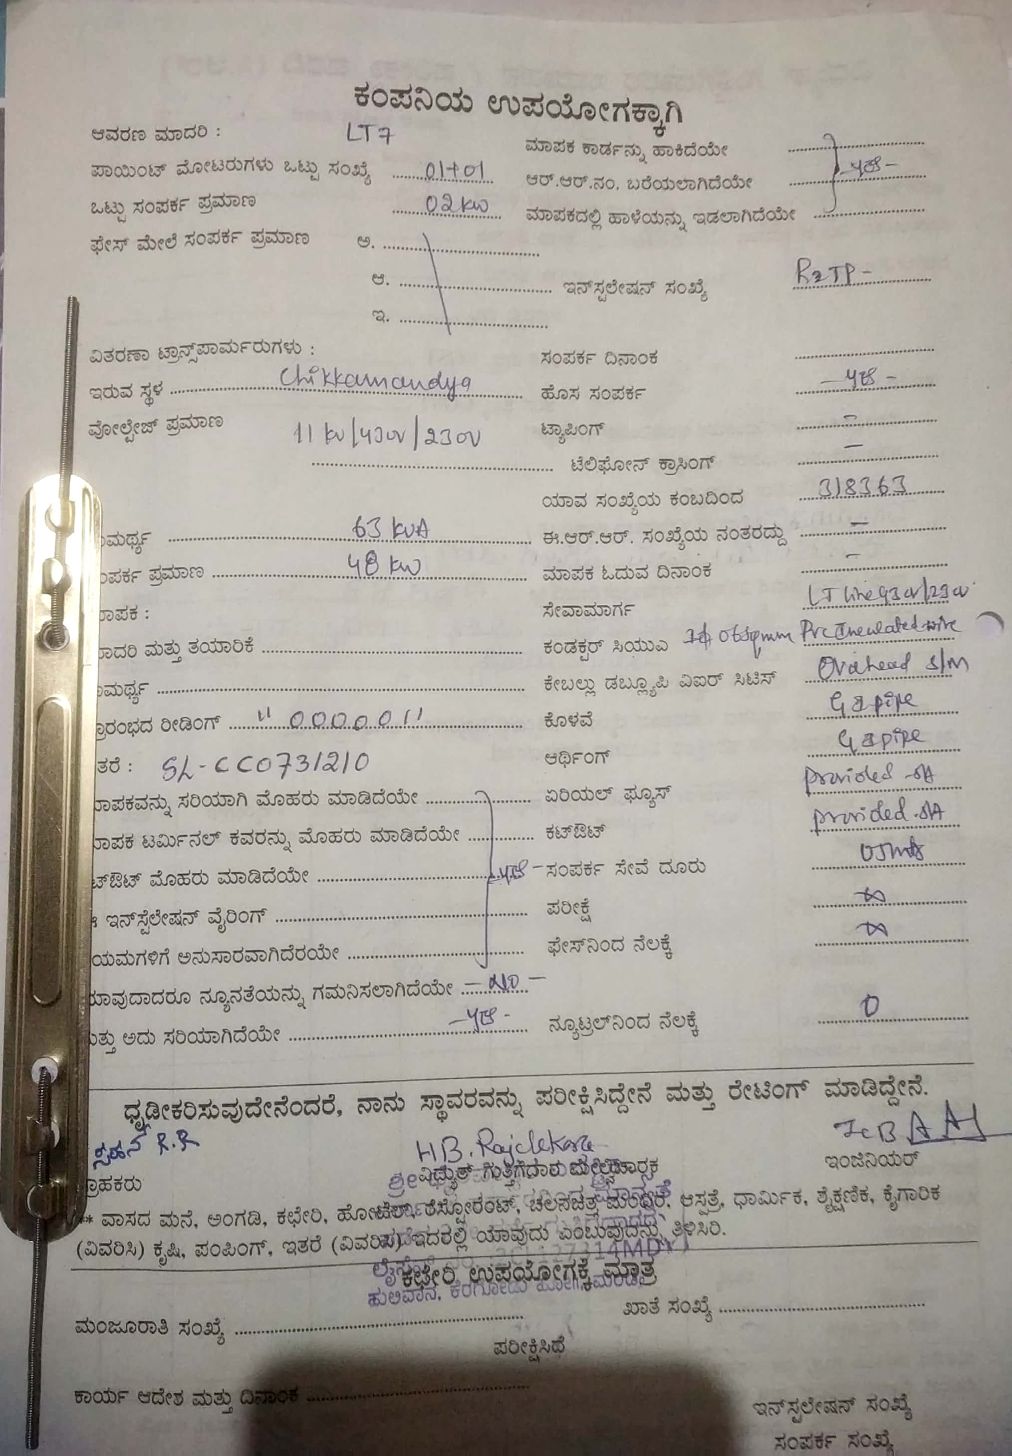 ಕಂಪನಿಯ ಉಪಯೋಗಕ್ಕಾಗಿ
ಆವರಣ ಮಾದರಿ : LT7
ಮಾಪಕ ಕಾರ್ಡನ್ನು ಹಾಕಿದೆಯೇ
ಪಾಯಿಂಟ್ ಮೋಟರುಗಳು ಒಟ್ಟು ಸಂಖ್ಯೆ 01+01
ಆರ್.ಆರ್.ನಂ. ಬರೆಯಲಾಗಿದೆಯೇ
ಒಟ್ಟು ಸಂಪರ್ಕ ಪ್ರಮಾಣ 02 kw
ಮಾಪಕದಲ್ಲಿ ಹಾಳೆಯನ್ನು ಇಡಲಾಗಿದೆಯೇ
ಫೇಸ್ ಮೇಲೆ ಸಂಪರ್ಕ ಪ್ರಮಾಣ ಅ.
ಆ. ಇನ್‌ಸ್ಪಲೇಷನ್ ಸಂಖ್ಯೆ
ಇ.
ವಿತರಣಾ ಟ್ರಾನ್ಸ್‌ಪಾರ್ಮರುಗಳು :
ಸಂಪರ್ಕ ದಿನಾಂಕ
ಇರುವ ಸ್ಥಳ Chikkamandya
ಹೊಸ ಸಂಪರ್ಕ
ವೋಲ್ಟೇಜ್ ಪ್ರಮಾಣ 11 kv/430v/230v
ಟ್ಯಾಪಿಂಗ್ -
ಟೆಲಿಫೋನ್ ಕ್ರಾಸಿಂಗ್ -
ಯಾವ ಸಂಖ್ಯೆಯ ಕಂಬದಿಂದ 318363
ಮರ್ಥ್ಯ 63 kVA
ಈ.ಆರ್.ಆರ್. ಸಂಖ್ಯೆಯ ನಂತರದ್ದು -
ಪರ್ಕ ಪ್ರಮಾಣ 48 kw
ಮಾಪಕ ಓದುವ ದಿನಾಂಕ -
ಾಪಕ :
ಸೇವಾಮಾರ್ಗ LT line 430v/230v
ಾದರಿ ಮತ್ತು ತಯಾರಿಕೆ
ಕಂಡಕ್ಟರ್ ಸಿಯುಎ 06sqmm Pvc Insulated wire
ಾಮರ್ಥ್ಯ
ಕೇಬಲ್ಲು ಡಬ್ಲ್ಯೂಪಿ ವಿಐರ್ ಸಿಟಿಸ್ Ovahead s/m
ಾರಂಭದ ರೀಡಿಂಗ್ "000001"
ಕೊಳವೆ GI pipe
ತರೆ : SL-CC0731210
ಆರ್ಥಿಂಗ್ GI pipe
ಾಪಕವನ್ನು ಸರಿಯಾಗಿ ಮೊಹರು ಮಾಡಿದೆಯೇ
ಏರಿಯಲ್ ಫ್ಯೂಸ್ provided
ಾಪಕ ಟರ್ಮಿನಲ್ ಕವರನ್ನು ಮೊಹರು ಮಾಡಿದೆಯೇ
ಕಟ್‌ಔಟ್ provided
ಟ್‌ಔಟ್ ಮೊಹರು ಮಾಡಿದೆಯೇ
ಸಂಪರ್ಕ ಸೇವೆ ದೂರು
ಇನ್‌ಸ್ಪೆಲೇಷನ್ ವೈರಿಂಗ್
ಪರೀಕ್ಷೆ
ಯಮಗಳಿಗೆ ಅನುಸಾರವಾಗಿದೆರಯೇ
ಫೇಸ್‌ನಿಂದ ನೆಲಕ್ಕೆ
ಯಾವುದಾದರೂ ನ್ಯೂನತೆಯನ್ನು ಗಮನಿಸಲಾಗಿದೆಯೇ - NO -
ತ್ತು ಅದು ಸರಿಯಾಗಿದೆಯೇ
ನ್ಯೂಟ್ರಲ್‌ನಿಂದ ನೆಲಕ್ಕೆ 0
ಧೃಡೀಕರಿಸುವುದೇನೆಂದರೆ, ನಾನು ಸ್ಥಾವರವನ್ನು ಪರೀಕ್ಷಿಸಿದ್ದೇನೆ ಮತ್ತು ರೇಟಿಂಗ್ ಮಾಡಿದ್ದೇನೆ.
H.B. Rajashekara
ಗ್ರಾಹಕರು
ವಿದ್ಯುತ್ ಗುತ್ತಿಗೆದಾರ ಮೇಲ್ವಿಚಾರಕ
ಇಂಜಿನಿಯರ್
** ವಾಸದ ಮನೆ, ಅಂಗಡಿ, ಕಛೇರಿ, ಹೋಟೆಲ್, ರೆಸ್ಟೋರೆಂಟ್, ಚಲನಚಿತ್ರ ಮಂದಿರ, ಆಸ್ಪತ್ರೆ, ಧಾರ್ಮಿಕ, ಶೈಕ್ಷಣಿಕ, ಕೈಗಾರಿಕ
(ವಿವರಿಸಿ) ಕೃಷಿ, ಪಂಪಿಂಗ್, ಇತರೆ (ವಿವರಿಸಿ) ಇದರಲ್ಲಿ ಯಾವುದು ಎಂಬುವುದನ್ನು ತಿಳಿಸಿರಿ.
ಕಛೇರಿ ಉಪಯೋಗಕ್ಕೆ ಮಾತ್ರ
ಮಂಜೂರಾತಿ ಸಂಖ್ಯೆ
ಖಾತೆ ಸಂಖ್ಯೆ
ಪರೀಕ್ಷಿಸಿದೆ
ಕಾರ್ಯ ಆದೇಶ ಮತ್ತು ದಿನಾಂಕ
ಇನ್‌ಸ್ಪಲೇಷನ್ ಸಂಖ್ಯೆ
ಸಂಪರ್ಕ ಸಂಖ್ಯೆ